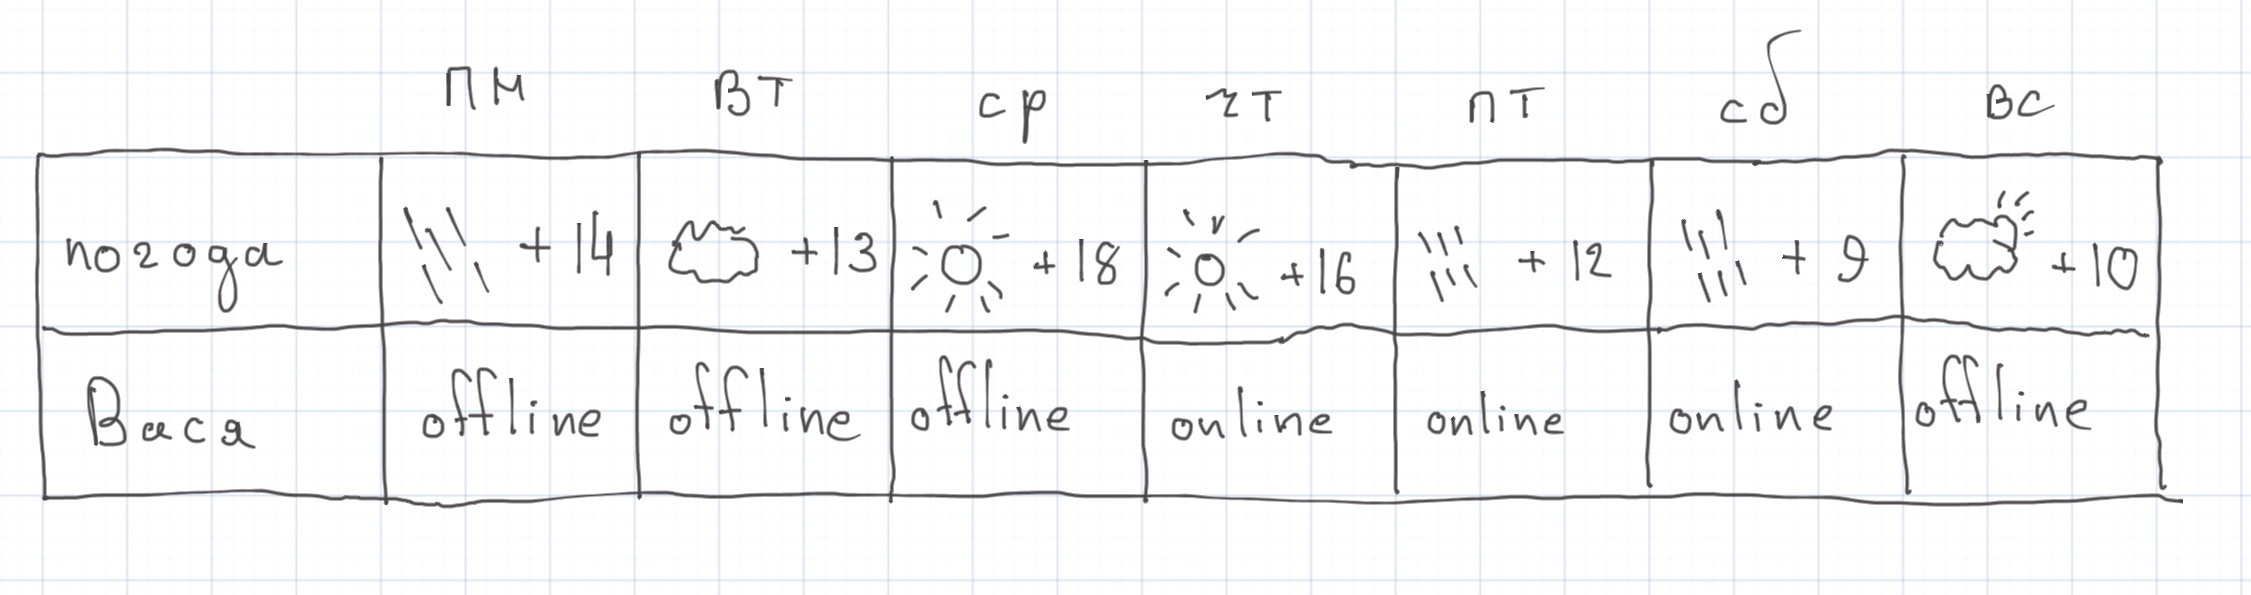 пн вт ср чт пт сб вс
погода +14 +13 +18 +16 +12 +9 +10
Вася offline offline offline online online online offline